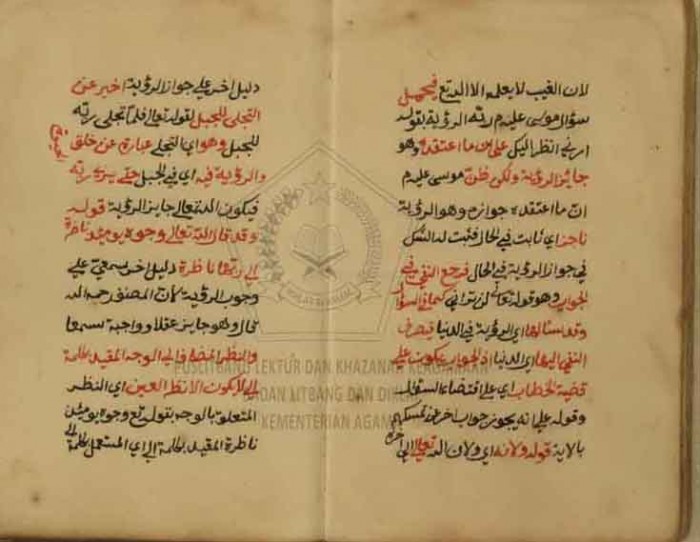 لان الغيب لا يعلمه الا الله تع فيحمل
سؤال موسى عليه م ربه الرؤية بقوله
ارني انظر اليك على ان ما اعتقده وهو
جايز الرؤية ولكن ظن موسى عليه م
ان ما اعتقده جوازه وهو الرؤية
ناجز اي ثابت في الحال فثبت له الشك
في جواز الرؤية في الحال فرجع النفي في
الجواب وهو قوله تعالى لن تراني كما في السؤال
وقد سئالها اي الرؤية في الدنيا فيصرف
النفي اليها اي الدنيا اذ الجواب يكون على
قضية الخطاب اي على اقتضاء السؤال
وقوله على انه يجوز جواب اخر عن تمسكهم
بالاية قوله ولانه اي ولان الله تعالى الى اخره
دليل اخر على جواز الرؤية اخبر عن
التجلي للجبل بقوله تعالى فلما تجلى ربه
للجبل وهو اي التجلي عبارة عن خلق
والرؤية فيه اي في الجبل حتى يرى ربه
فيكون الله تعالى جايز الرؤية قوله
وقد قال الله تعالى وجوه يومئذ ناظرة
الى ربها ناظرة دليل اخر سمعي على
وجوب الرؤية لان المصنف رحمه الله
قال وهو جايز عقلا وواجبة سمعا
والنظر المضاف الى الوجه المقيد بكلمة
الى لا يكون الا نظر العين اي النظر
المتعلق بالوجه بقوله تع وجوه يومئذ
ناظرة المقيد بكلمة الى اي المستعمل بكلمة الى
PUSLITBANG LEKTUR DAN KHAZANAH KEAGAMAAN
BADAN LITBANG DAN DIKLAT
KEMENTERIAN AGAMA